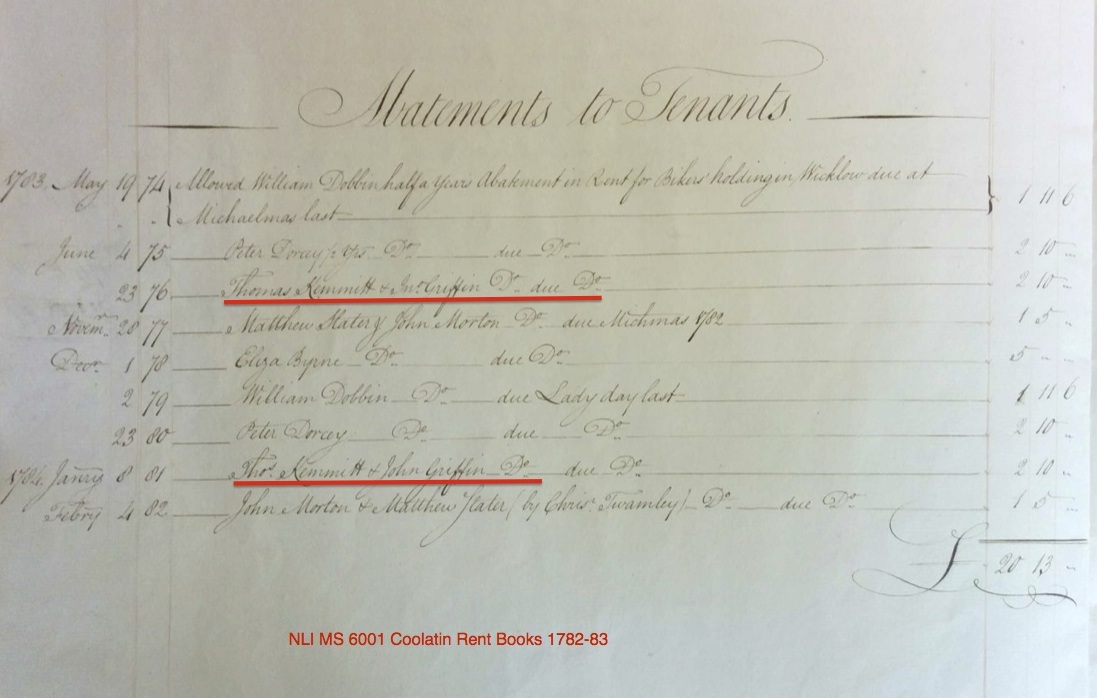 Abatements to Tenants.
1783. May 19 74 Allowed William Dobbin half a Years Abatement in Rent for Bikers holding in Wicklow due at
Michaelmas last 1 11 6
June 4 75 Peter Dorcey Do due Do 2 10 -
23 76 Thomas Kemmitt & Jno. Griffin Do due Do 2 10 -
Novemr. 28 77 Matthew Slater & John Morton Do due Michmas 1782 1 5 -
Decr. 1 78 Eliza Byrne Do due Do 5 - -
2 79 William Dobbin Do due Lady day last 1 11 6
23 80 Peter Dorcey Do due Do 2 10 -
1784 Janry 8 81 Thos. Kemmitt & John Griffin Do due Do 2 10 -
Febry 4 82 John Morton & Matthew Slater (by Chrisr. Twamley) Do due Do 1 5 -
£ 20 13 -
NLI MS 6001 Coolatin Rent Books 1782-83